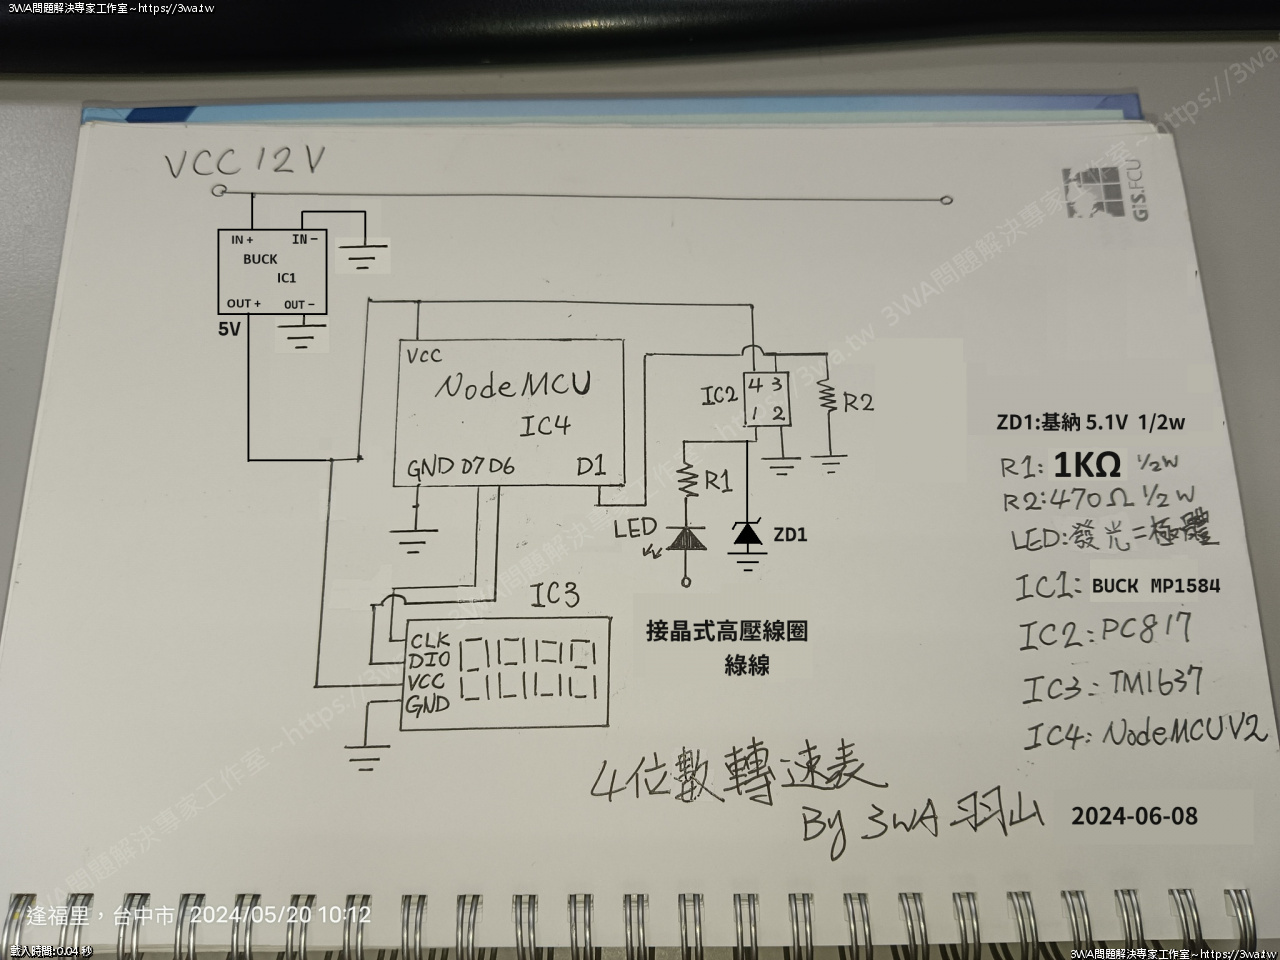 3WA問題解決專家工作室~https://3wa.tw
VCC 12V
GIS.FCU
IN + IN −
BUCK
IC1
OUT + OUT −
5V
VCC
NodeMCU
IC4
GND D7 D6 D1
IC2
4 3
1 2
R2
R1
LED
ZD1
IC3
CLK
DIO
VCC
GND
接晶式高壓線圈
綠線
ZD1:基納 5.1V 1/2w
R1: 1KΩ 1/2W
R2:470Ω 1/2W
LED:發光二極體
IC1: BUCK MP1584
IC2:PC817
IC3:TM1637
IC4:NodeMCUV2
4位數轉速表
By 3WA 羽山 2024-06-08
逢福里,台中市 2024/05/20 10:12
載入時間:0.04 秒
3WA問題解決專家工作室~https://3wa.tw
3WA問題解決專家工作室~https://3wa.tw
3WA問題解決專家工作室~https://3wa.tw